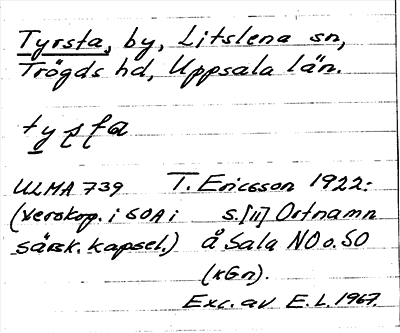 Tyrsta, by, Litslena sn,
Trögds hd, Uppsala län.
ULMA 739 T. Ericsson 1922:
(xerokop. i SOA i s. [II] Ortnamn
särsk. kapsel.) å Sala NO o. SO
(kGn).
Exc. av E. L. 1967.